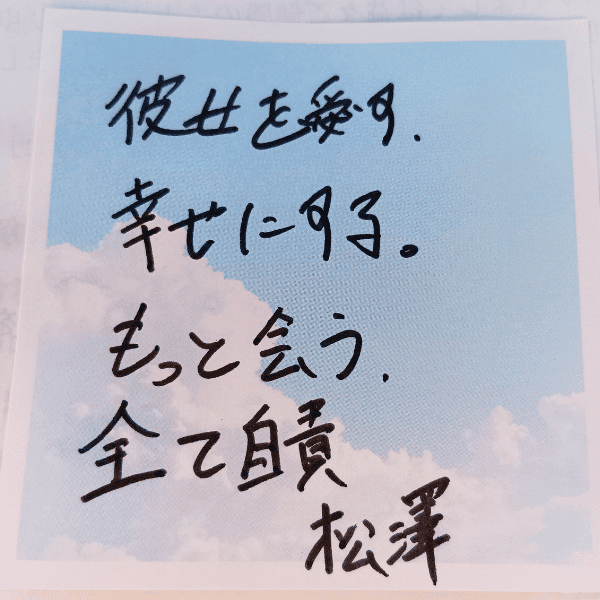 彼女を愛す.
幸せにする。
もっと会う.
全て自責
松澤